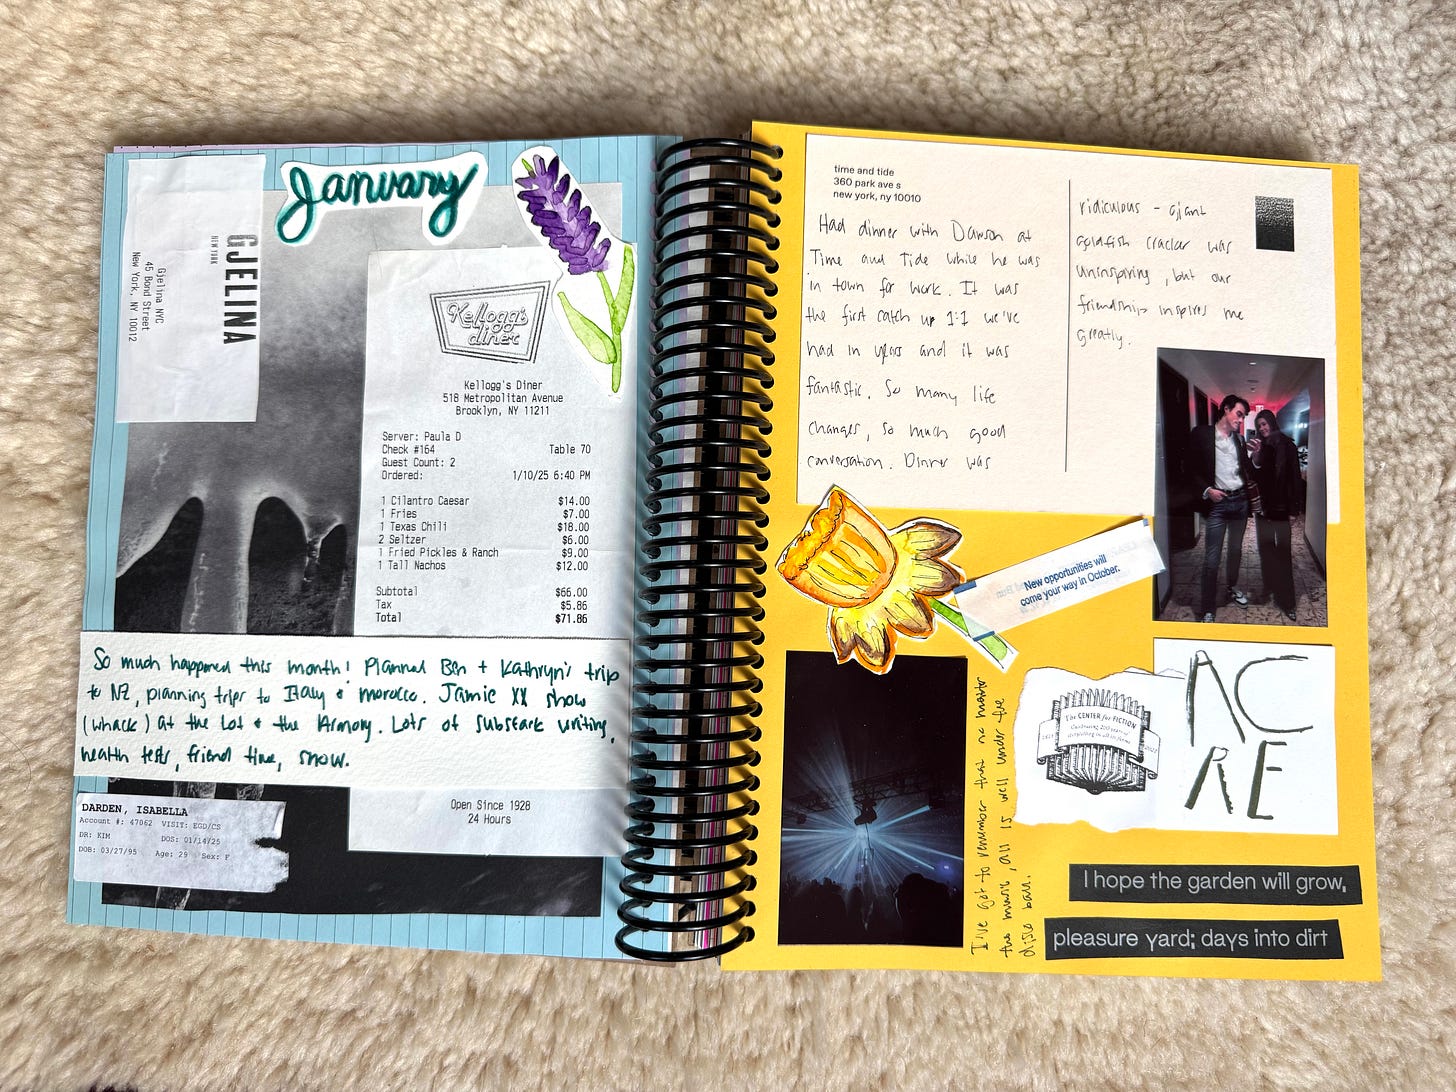 January
GJELINA
NEW YORK
Gjelina NYC
45 Bond Street
New York, NY 10012
Kellogg's
diner
Kellogg's Diner
518 Metropolitan Avenue
Brooklyn, NY 11211
Server: Paula D
Check #164 Table 70
Guest Count: 2
Ordered: 1/10/25 6:40 PM
1 Cilantro Caesar $14.00
1 Fries $7.00
1 Texas Chili $18.00
2 Seltzer $6.00
1 Fried Pickles & Ranch $9.00
1 Tall Nachos $12.00
Subtotal $66.00
Tax $5.86
Total $71.86
So much happened this month! Planned Ben + Kathryn's trip
to NZ, planning trips to Italy & morocco. Jamie XX show
(whack) at the Lot & the Armory. Lots of substack writing,
health tests, friend time, snow.
DARDEN, ISABELLA
Account #: 47062 VISIT: EGD/CS
DR: KIM DOS: 01/14/25
DOB: 03/27/95 Age: 29 Sex: F
Open Since 1928
24 Hours
time and tide
360 park ave s
new york, ny 10010
Had dinner with Dawson at
Time and Tide while he was
in town for work. It was
the first catch up 1:1 we've
had in years and it was
fantastic. So many life
changes, so much good
conversation. Dinner was
ridiculous - giant
goldfish cracker was
uninspiring, but our
friendship inspires me
greatly.
New opportunities will
come your way in October.
I've got to remember that no matter
the music, all is well under the
disco ball.
The CENTER for FICTION
Celebrating 200 years of
storytelling in all its forms
ACRE
I hope the garden will grow,
pleasure yard; days into dirt